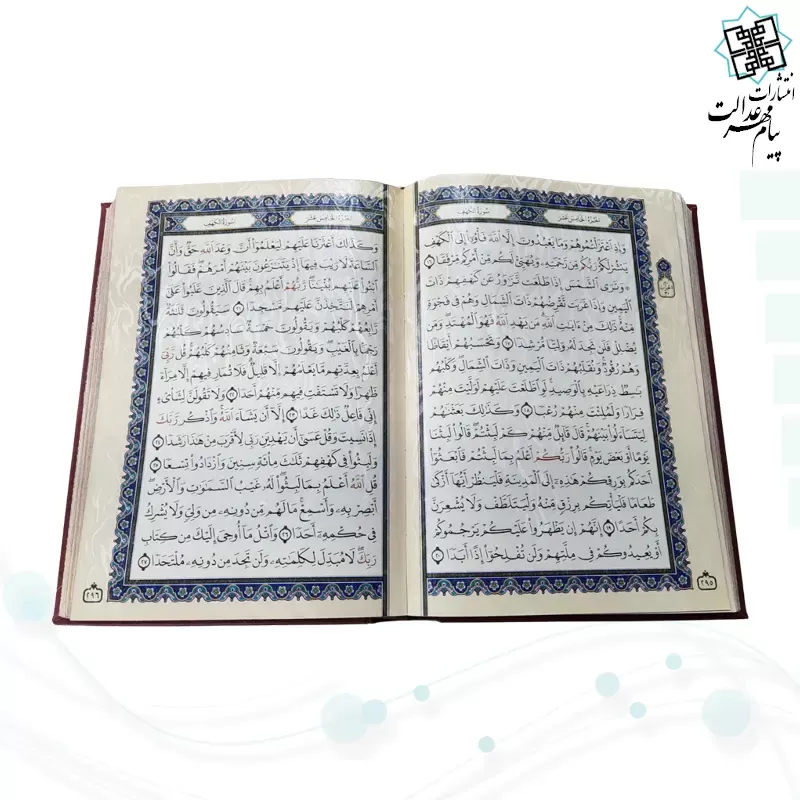 انتشارات
پیام مهر عدالت
الجزء الخامس عشر
سورة الكهف
وَإِذِ ٱعْتَزَلْتُمُوهُمْ وَمَا يَعْبُدُونَ إِلَّا ٱللَّهَ فَأْوُۥٓا۟ إِلَى ٱلْكَهْفِ
يَنشُرْ لَكُمْ رَبُّكُم مِّن رَّحْمَتِهِۦ وَيُهَيِّئْ لَكُم مِّنْ أَمْرِكُم مِّرْفَقًا ١٦
وَتَرَى ٱلشَّمْسَ إِذَا طَلَعَت تَّزَٰوَرُ عَن كَهْفِهِمْ ذَاتَ
ٱلْيَمِينِ وَإِذَا غَرَبَت تَّقْرِضُهُمْ ذَاتَ ٱلشِّمَالِ وَهُمْ فِى فَجْوَةٍ
مِّنْهُ ذَٰلِكَ مِنْ ءَايَٰتِ ٱللَّهِ مَن يَهْدِ ٱللَّهُ فَهُوَ ٱلْمُهْتَدِ وَمَن
يُضْلِلْ فَلَن تَجِدَ لَهُۥ وَلِيًّا مُّرْشِدًا ١٧ وَتَحْسَبُهُمْ أَيْقَاظًا
وَهُمْ رُقُودٌ وَنُقَلِّبُهُمْ ذَاتَ ٱلْيَمِينِ وَذَاتَ ٱلشِّمَالِ وَكَلْبُهُم
بَٰسِطٌ ذِرَاعَيْهِ بِٱلْوَصِيدِ لَوِ ٱطَّلَعْتَ عَلَيْهِمْ لَوَلَّيْتَ مِنْهُمْ
فِرَارًا وَلَمُلِئْتَ مِنْهُمْ رُعْبًا ١٨ وَكَذَٰلِكَ بَعَثْنَٰهُمْ
لِيَتَسَآءَلُوا۟ بَيْنَهُمْ قَالَ قَآئِلٌ مِّنْهُمْ كَمْ لَبِثْتُمْ قَالُوا۟ لَبِثْنَا
يَوْمًا أَوْ بَعْضَ يَوْمٍ قَالُوا۟ رَبُّكُمْ أَعْلَمُ بِمَا لَبِثْتُمْ فَٱبْعَثُوٓا۟
أَحَدَكُم بِوَرِقِكُمْ هَٰذِهِۦٓ إِلَى ٱلْمَدِينَةِ فَلْيَنظُرْ أَيُّهَآ أَزْكَىٰ
طَعَامًا فَلْيَأْتِكُم بِرِزْقٍ مِّنْهُ وَلْيَتَلَطَّفْ وَلَا يُشْعِرَنَّ
بِكُمْ أَحَدًا ١٩ إِنَّهُمْ إِن يَظْهَرُوا۟ عَلَيْكُمْ يَرْجُمُوكُمْ
أَوْ يُعِيدُوكُمْ فِى مِلَّتِهِمْ وَلَن تُفْلِحُوٓا۟ إِذًا أَبَدًا ٢٠
٢٩٥
الجزء الخامس عشر
سورة الكهف
وَكَذَٰلِكَ أَعْثَرْنَا عَلَيْهِمْ لِيَعْلَمُوٓا۟ أَنَّ وَعْدَ ٱللَّهِ حَقٌّ وَأَنَّ
ٱلسَّاعَةَ لَا رَيْبَ فِيهَآ إِذْ يَتَنَٰزَعُونَ بَيْنَهُمْ أَمْرَهُمْ فَقَالُوا۟
ٱبْنُوا۟ عَلَيْهِم بُنْيَٰنًا رَّبُّهُمْ أَعْلَمُ بِهِمْ قَالَ ٱلَّذِينَ غَلَبُوا۟ عَلَىٰٓ
أَمْرِهِمْ لَنَتَّخِذَنَّ عَلَيْهِم مَّسْجِدًا ٢١ سَيَقُولُونَ ثَلَٰثَةٌ
رَّابِعُهُمْ كَلْبُهُمْ وَيَقُولُونَ خَمْسَةٌ سَادِسُهُمْ كَلْبُهُمْ
رَجْمًۢا بِٱلْغَيْبِ وَيَقُولُونَ سَبْعَةٌ وَثَامِنُهُمْ كَلْبُهُمْ قُل رَّبِّىٓ
أَعْلَمُ بِعِدَّتِهِم مَّا يَعْلَمُهُمْ إِلَّا قَلِيلٌ فَلَا تُمَارِ فِيهِمْ إِلَّا مِرَآءً
ظَٰهِرًا وَلَا تَسْتَفْتِ فِيهِم مِّنْهُمْ أَحَدًا ٢٢ وَلَا تَقُولَنَّ لِشَا۟ىْءٍ
إِنِّى فَاعِلٌ ذَٰلِكَ غَدًا ٢٣ إِلَّآ أَن يَشَآءَ ٱللَّهُ وَٱذْكُر رَّبَّكَ
إِذَا نَسِيتَ وَقُلْ عَسَىٰٓ أَن يَهْدِيَنِ رَبِّى لِأَقْرَبَ مِنْ هَٰذَا رَشَدًا ٢٤
وَلَبِثُوا۟ فِى كَهْفِهِمْ ثَلَٰثَ مِا۟ئَةٍ سِنِينَ وَٱزْدَادُوا۟ تِسْعًا ٢٥
قُلِ ٱللَّهُ أَعْلَمُ بِمَا لَبِثُوا۟ لَهُۥ غَيْبُ ٱلسَّمَٰوَٰتِ وَٱلْأَرْضِ
أَبْصِرْ بِهِۦ وَأَسْمِعْ مَا لَهُم مِّن دُونِهِۦ مِن وَلِىٍّ وَلَا يُشْرِكُ
فِى حُكْمِهِۦٓ أَحَدًا ٢٦ وَٱتْلُ مَآ أُوحِىَ إِلَيْكَ مِن كِتَابِ
رَبِّكَ لَا مُبَدِّلَ لِكَلِمَٰتِهِۦ وَلَن تَجِدَ مِن دُونِهِۦ مُلْتَحَدًا ٢٧
٢٩٦